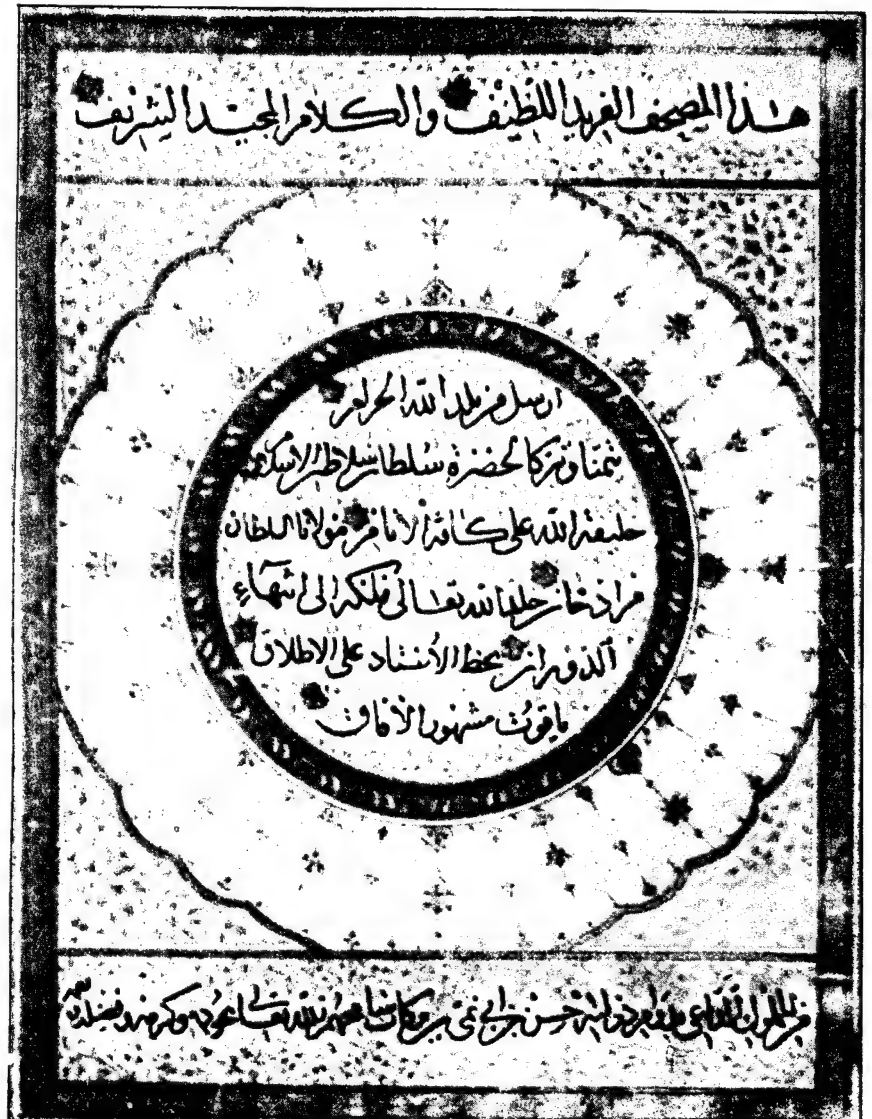 هذا المصحف الفريد اللطيف والكلام المجيد الشريف
ارسل من بلد الله الحرام
تيمنا وتبركا لحضرة سلطان سلاطين الاسلام
خليفة الله على كافة الأنام مولانا السلطان
مراد خان خلد الله تعالى ملكه الى انتهاء
الدوران بخط الأستاد على الاطلاق
ياقوت مشهور الآفاق
من المملوك الداعي دولته حسن بن ابي نمي بن بركات الله تعالى